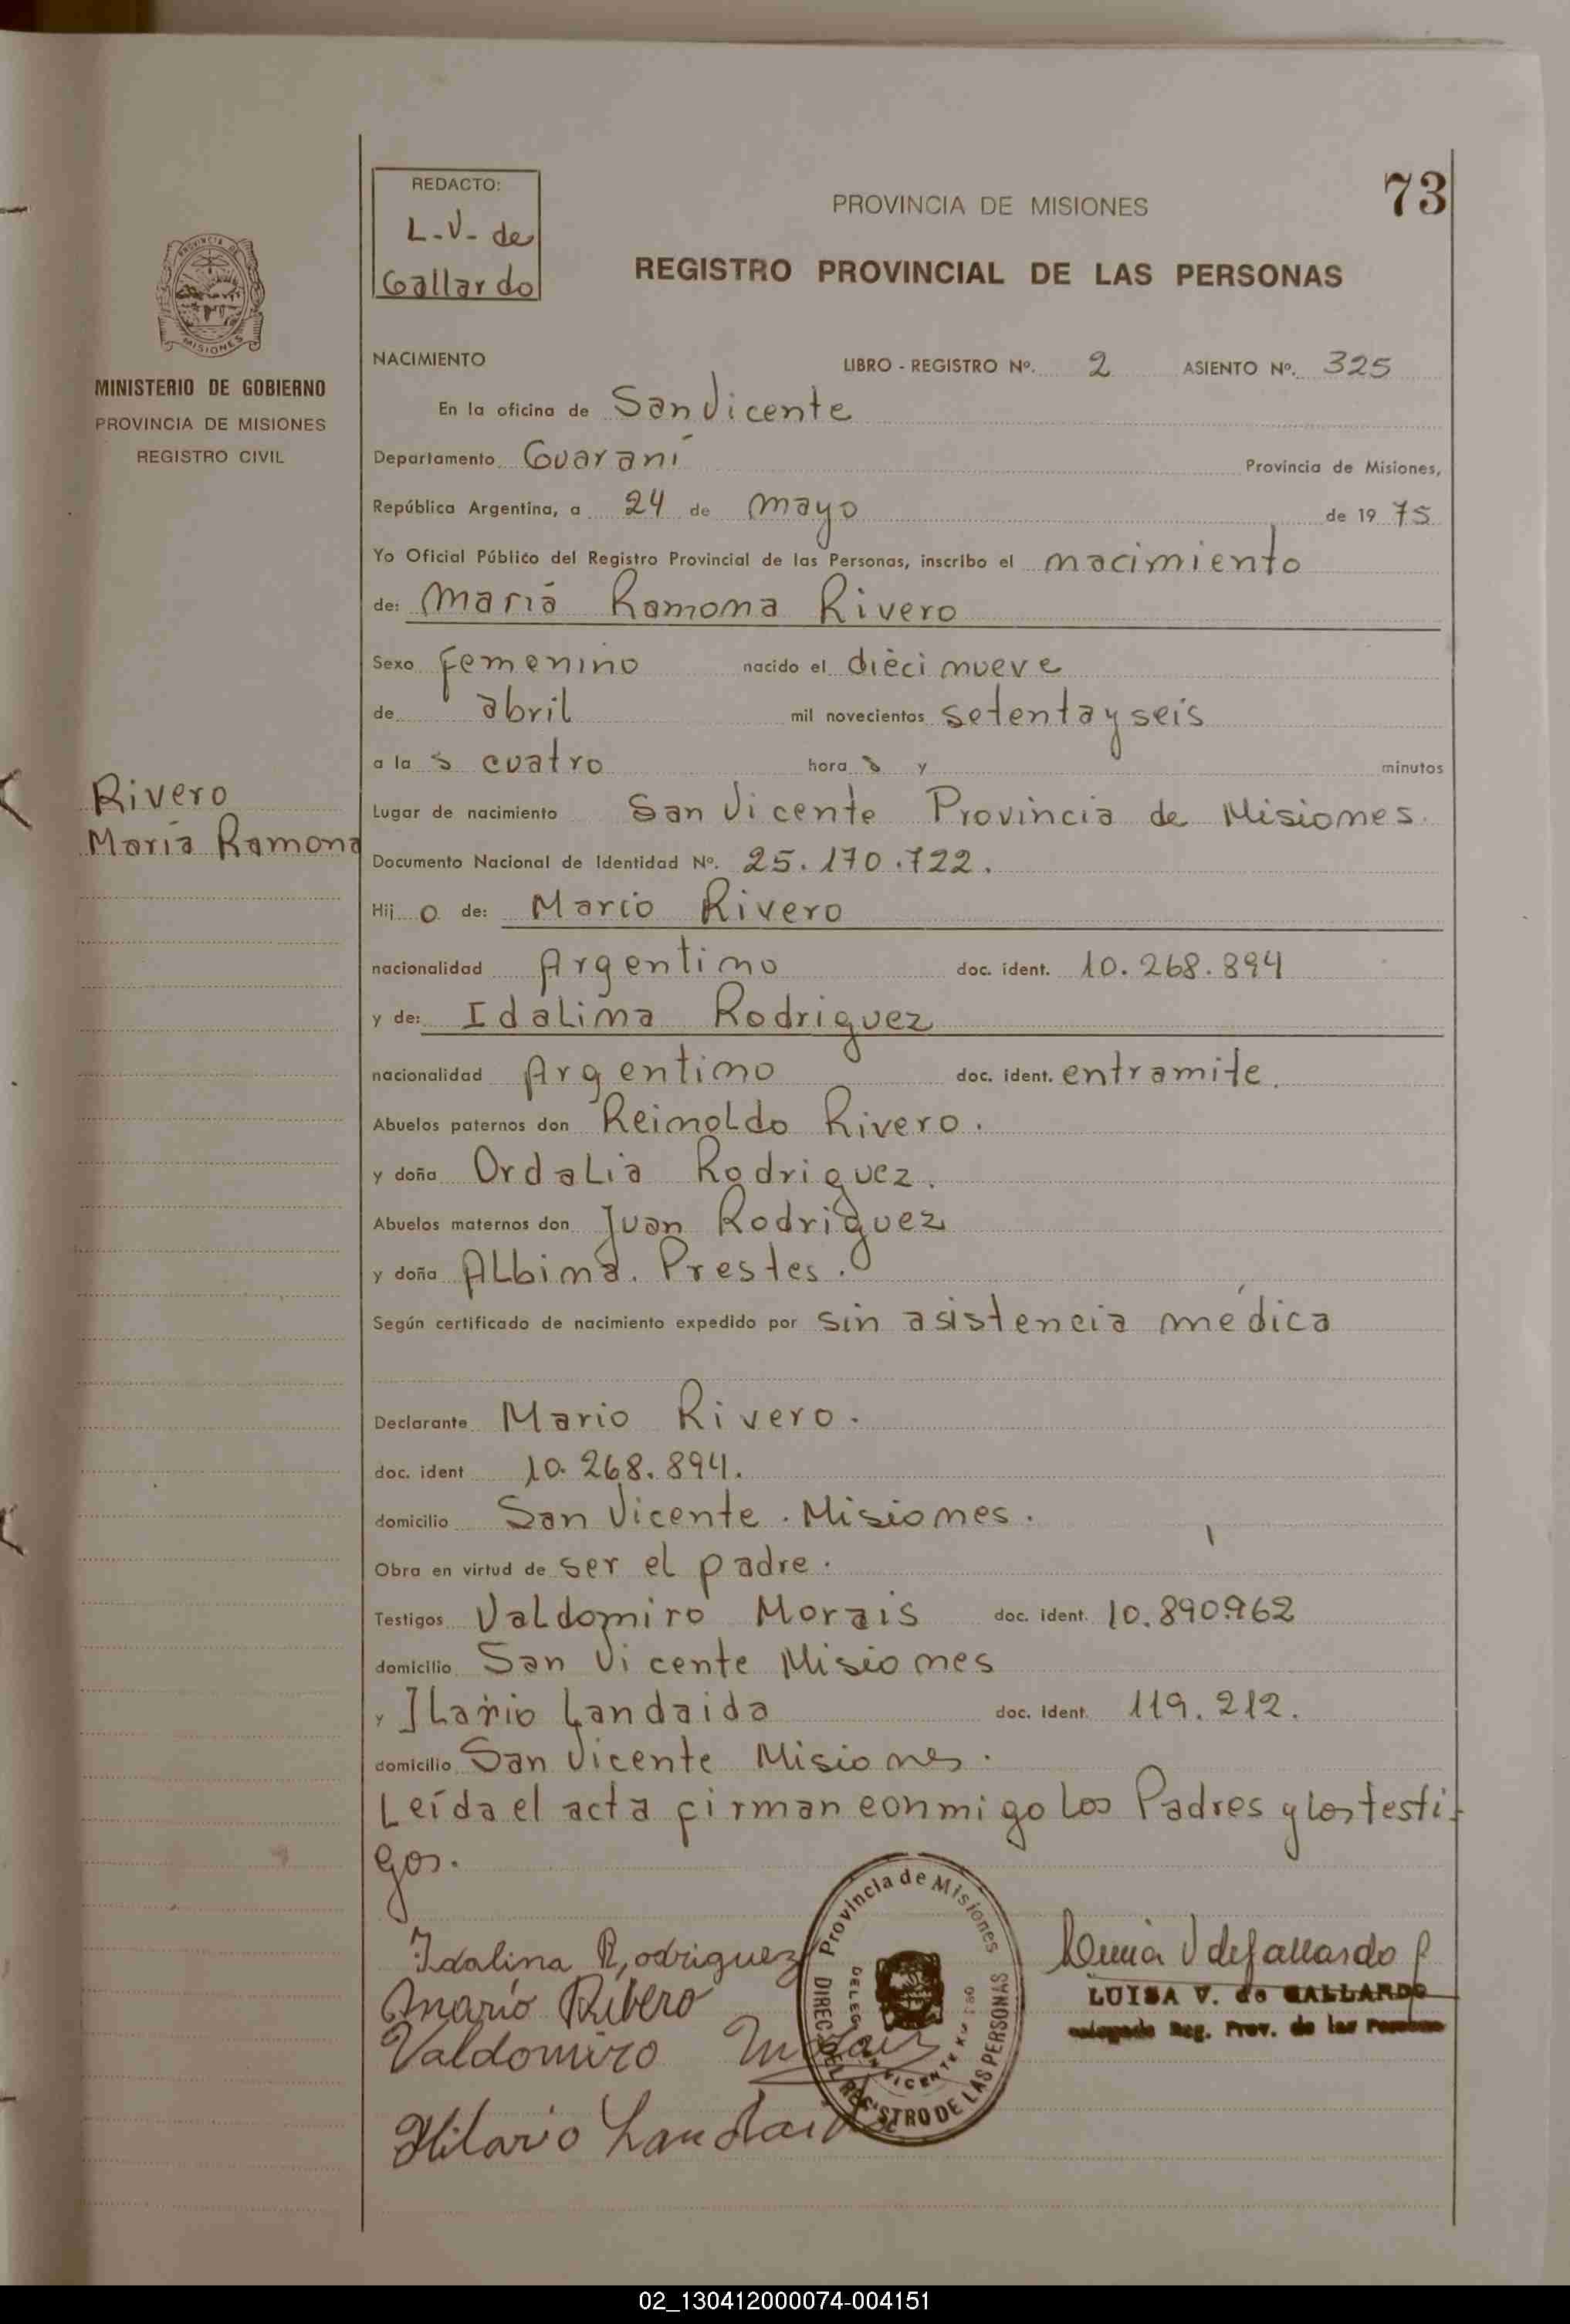 73
REDACTO:
L-V- de
Gallardo
PROVINCIA DE MISIONES
REGISTRO PROVINCIAL DE LAS PERSONAS
PROVINCIA DE
MISIONES
MINISTERIO DE GOBIERNO
PROVINCIA DE MISIONES
REGISTRO CIVIL
NACIMIENTO LIBRO - REGISTRO Nº. 2 ASIENTO Nº. 325
En la oficina de San Vicente
Departamento Guaraní Provincia de Misiones,
República Argentina, a 24 de mayo de 19 75
Yo Oficial Público del Registro Provincial de las Personas, inscribo el nacimiento
de: María Ramona Rivero
Sexo femenino nacido el dieci nueve
de abril mil novecientos setenta y seis
a la s cuatro hora s y minutos
Rivero
María Ramona
Lugar de nacimiento San Vicente Provincia de Misiones.
Documento Nacional de Identidad Nº. 25.170.722.
Hij o de: Mario Rivero
nacionalidad Argentino doc. ident. 10.268.894
y de: Idalina Rodriguez
nacionalidad Argentino doc. ident. entramite.
Abuelos paternos don Reinoldo Rivero.
y doña Ordalia Rodriguez.
Abuelos maternos don Juan Rodriguez
y doña Albina. Prestes.
Según certificado de nacimiento expedido por sin asistencia médica
Declarante Mario Rivero.
doc. ident 10.268.894.
domicilio San Vicente. Misiones.
Obra en virtud de ser el padre.
Testigos Valdomiro Morais doc. ident. 10.890.962
domicilio San Vicente Misiones
y Ilario Landaida doc. ident. 119.212.
domicilio San Vicente Misiones.
Leída el acta firman conmigo los Padres y los testi-
gos.
Idalina Rodriguez
Mario Ribero
Valdomiro Morais
Hilario Landaida
Provincia de Misiones
DIREC. DEL REGISTRO DE LAS PERSONAS
V de Gallardo
LUISA V. de GALLARDO
Delegada Reg. Prov. de las Personas
02_130412000074-004151